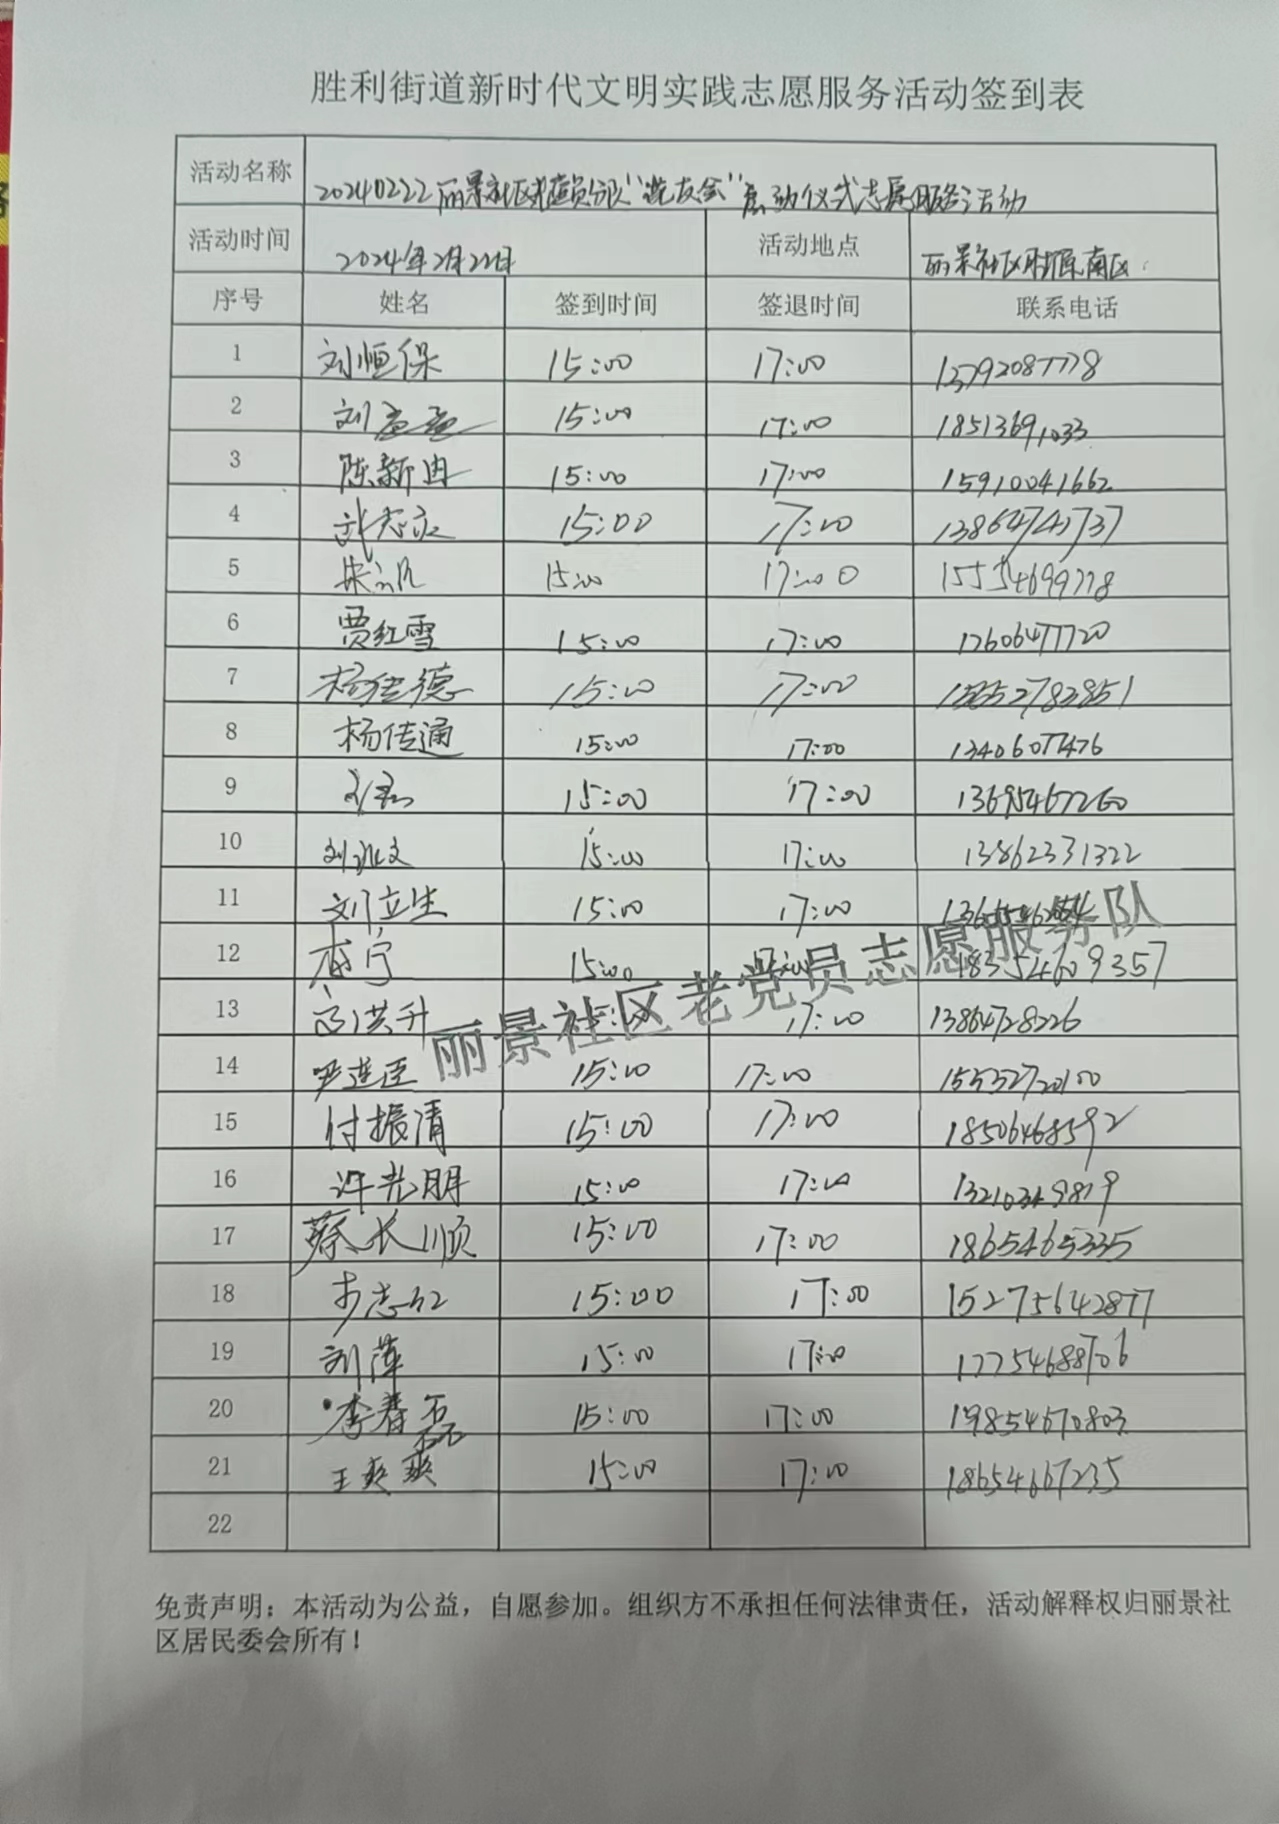 胜利街道新时代文明实践志愿服务活动签到表
活动名称 20240222丽景社区 启动仪式志愿服务活动
活动时间 2024年2月22日 活动地点 丽景社区 南区
序号 姓名 签到时间 签退时间 联系电话
1 刘恒保 15:00 17:00 13792087778
2 刘 15:00 17:00 18513691033
3 陈新冉 15:00 17:00 15910041662
4 15:00 17:00
5 15:00 17:00 15554699778
6 贾红雪 15:00 17:00 17606477720
7 杨传德 15:00 17:00
8 杨传通 15:00 17:00 13406077476
9 15:00 17:00 13695467260
10 15:00 17:00 13862331322
11 刘立生 15:00 17:00
12 15:00 18354609357
13 洪升 17:00 13864728226
14 严莲臣 15:00 17:00
15 付振清 15:00 17:00 18506468592
16 许光明 15:00 17:00 13210349819
17 蔡长顺 15:00 17:00 18654465335
18 15:00 17:00 15275642877
19 刘萍 15:00 17:00 17754688706
20 李春磊 15:00 17:00 19854670803
21 王爽爽 15:00 17:00 18654667235
22
丽景社区老党员志愿服务队
免责声明：本活动为公益，自愿参加。组织方不承担任何法律责任，活动解释权归丽景社
区居民委会所有！